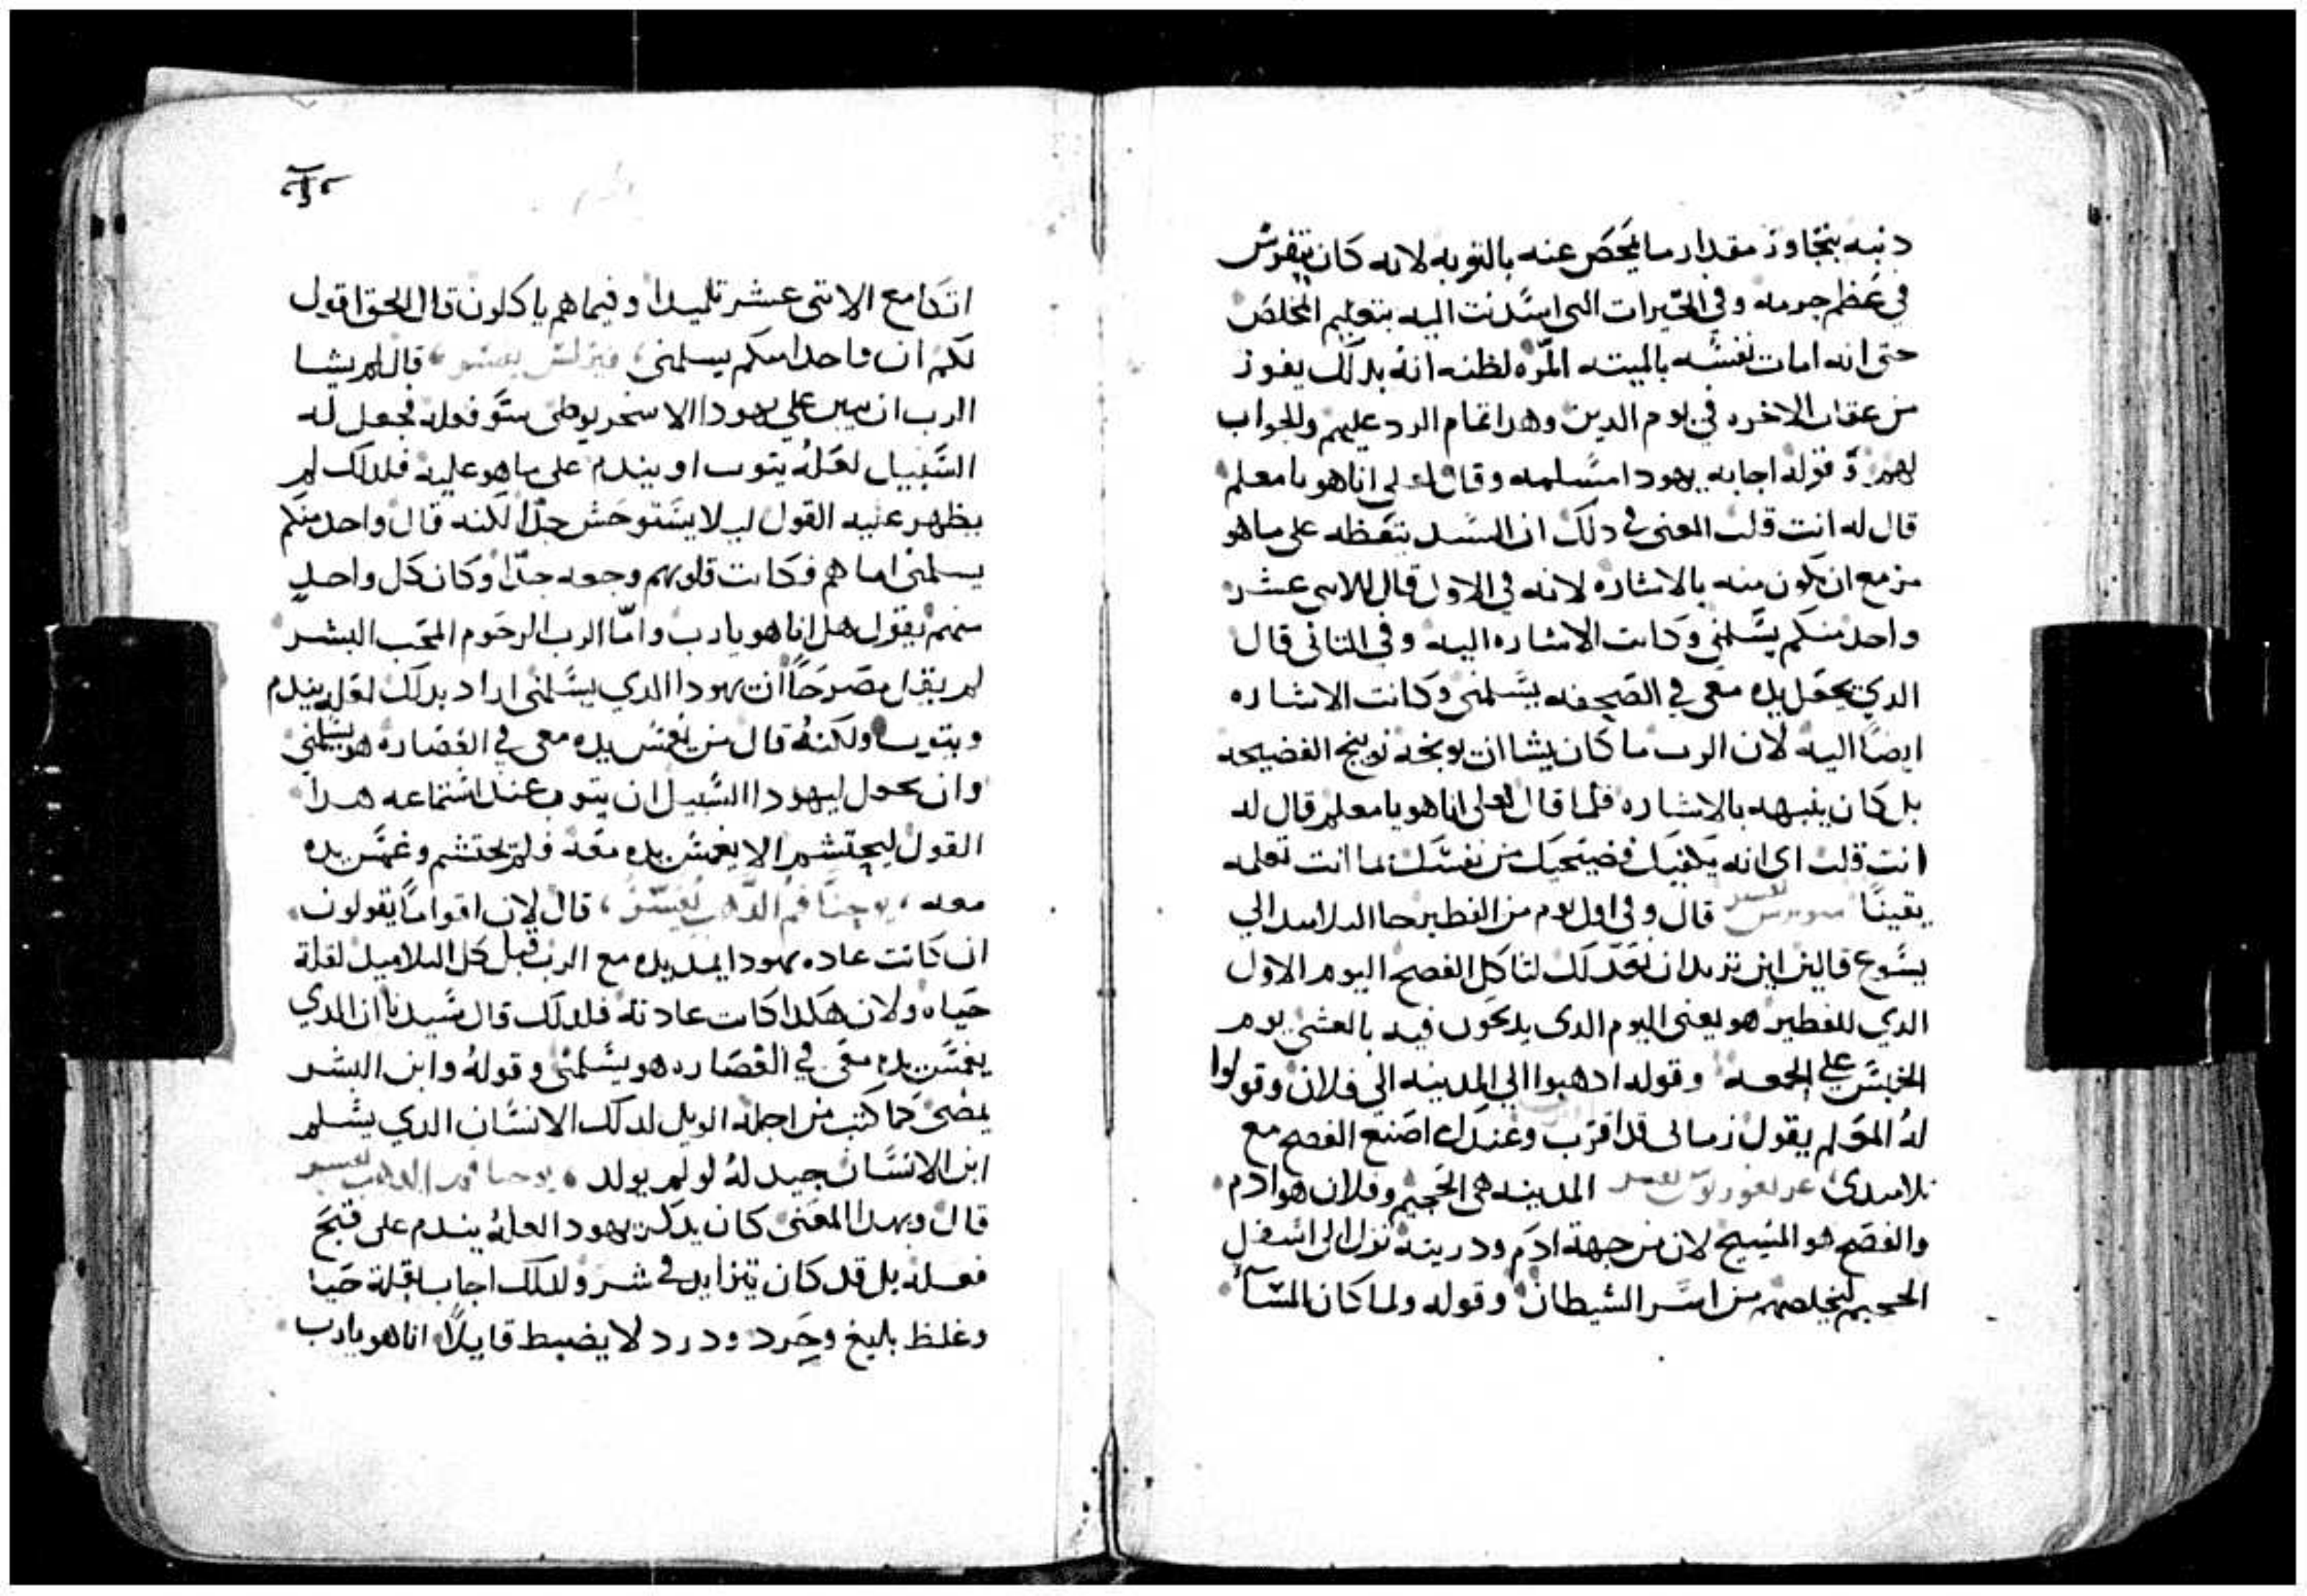 دنبه بتجاوز مقدار ما يمحص عنه بالتوبه لانه كان يتفرس
في عظم جرمه وفي الخيرات التى اسدت اليه بتعليم المخلص
حتى انه امات نفسه بالميته المره لظنه انه بدلك يفوز
من عقاب الاخره في يوم الدين وهدا تمام الرد عليهم والجواب
لهم وقوله اجابه يهودا مسلمه وقال لعلى اناهو يا معلم
قال له انت قلت المعنى في دلك ان السيد تيقظه على ما هو
مزمع ان يكون منه بالاشاره لانه في الاول قال للاتنى عشر
واحد منكم يسلمني وكانت الاشاره اليه وفي التاني قال
الدي يجعل يده معى في الصحفه يسلمنى وكانت الاشاره
ايضا اليه لان الرب ما كان يشا ان يوبخه توبيخ الفضيحه
بل كان ينبهه بالاشاره فلما قال لعلى اناهو يا معلم قال له
انت قلت اى انه يكفيك فضيحتك من نفسك بما انت تعلمه
يقينا قال وفى اول يوم من الفطير جا التلاميد الي
يسوع قالين اين تريد ان نعد لك لتاكل الفصح اليوم الاول
الدي للفطير هو يعنى اليوم الدى يدبحون فيه بالعشى يوم
الخميس على الجمعه وقوله ادهبوا الى المدينه الى فلان وقولوا
له المعلم يقول زمانى قد اقترب وعندك اصنع الفصح مع
تلاميدى المدينه هى الجحيم وفلان هو ادم
والفصح هو المسيح لان من جهة ادم ودريته نزل الى اسفل
الجحيم ليخلصهم من اسر الشيطان وقوله ولما كان المسآ
اتكا مع الاتنى عشر تلميدا وفيما هم ياكلون قال الحق اقول
لكم ان واحدا منكم يسلمنى قال لم يشا
الرب ان يبين على يهودا الاسخريوطى ستو فعله فجعل له
السبيل لعله يتوب او يندم على ما هو عليه فلدلك لم
يظهر عليه القول ليلا يستوحش جدا لكنه قال واحد منكم
يسلمنى اما هم فكانت قلوبهم وجعه جدا وكان كل واحد
منهم يقول هل اناهو يا رب واما الرب الرحوم المحب البشر
لم يقل مصرحا ان يهودا الدي يسلمنى اراد بدلك لعله يندم
ويتوب ولكنه قال من يغمس يده معى في الغضاره هو يسلمني
وان يحول ليهودا السبيل ان يتوب عند استماعه هدا
القول ليحتشم الا يغمس يده معه فلم يحتشم وغمس يده
معه يوحنا فم الدهب يفسر قال لان اقواما يقولون
ان كانت عاده يهودا يمد يده مع الرب قبل كل التلاميد لقلة
حياه ولان هكدا كانت عادته فلدلك قال سيدنا ان الدي
يغمس يده معى في الغضاره هو يسلمنى وقوله وابن البشر
يمضى كما كتب من اجله الويل لدلك الانسان الدي يسلم
ابن الانسان جيد له لو لم يولد يوحنا فم الدهب يفسر
قال وبهدا المعنى كان يدكر يهودا لعله يندم على قبح
فعله بل قد كان يتزايد في شر ولدلك اجاب بقلة حيا
وغلظ بليغ وحرد ودرد لا يضبط قايلا اناهو يا رب